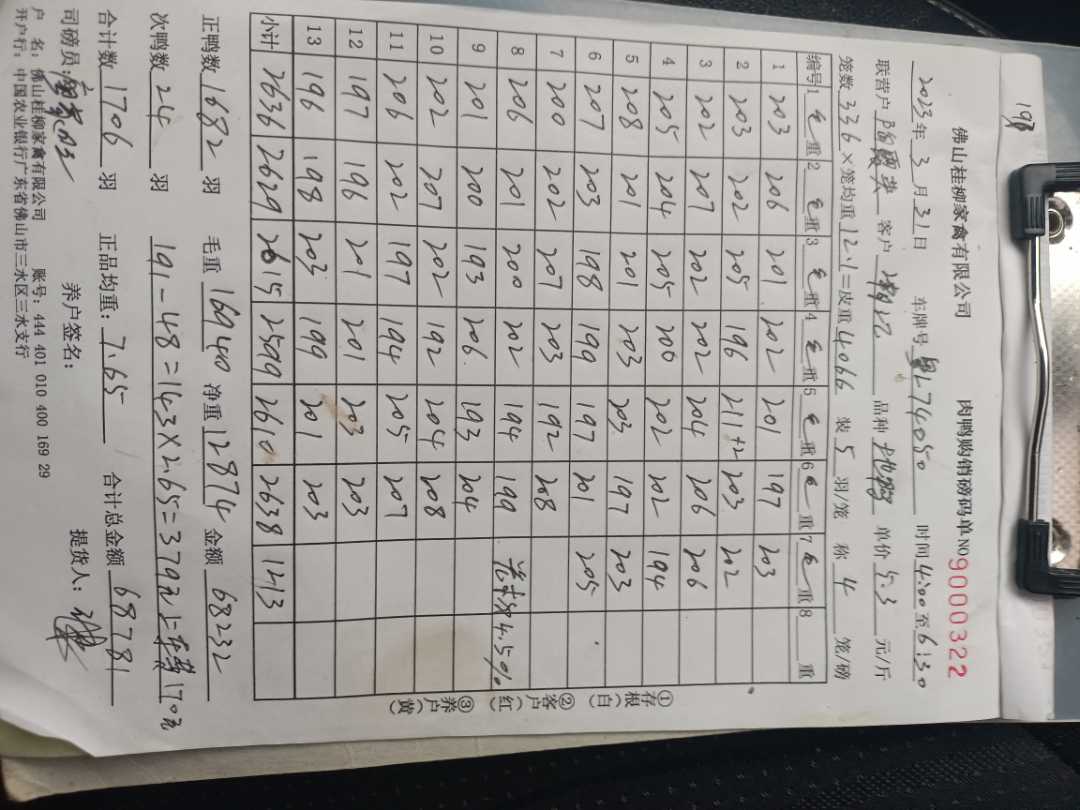 193
佛山桂柳家禽有限公司 肉鸭购销磅码单 NO 9000322
2023年3月31日 车牌号 粤L74050 时间4:00至6:30
联营户 客户 品种 单价5.3元/斤
笼数336×笼均重12.1=皮重4066 装5羽/笼 称4笼/磅
编号 1毛重 2毛重 3毛重 4毛重 5毛重 6毛重 7毛重 8 重
1 203 206 201 202 201 197 203
2 203 202 205 196 211+2 203 202
3 202 207 202 202 204 206 206
4 205 204 205 200 202 202 194
5 208 201 201 203 203 197 203
6 207 203 198 199 197 201 205
7 200 202 207 203 192 208
8 206 201 200 202 194 199 84.5%
9 201 200 193 206 193 204
10 202 207 202 192 204 208
11 206 202 197 194 205 207
12 197 196 201 201 203 203
13 196 198 203 199 201 203
小计 2636 2629 2615 2599 2610 2638 1213
正鸭数1682羽 毛重16940 净重12874 金额68232
次鸭数24羽 191-48=143×2.65=379元 170元
合计数1706羽 正品均重:7.65 合计总金额68781
司磅员: 养户签名: 提货人:
户 名:佛山桂柳家禽有限公司 账号:444 401 010 400 169 29
开户行:中国农业银行广东省佛山市三水区三水支行
①存根(白) ②客户(红) ③养户(黄)